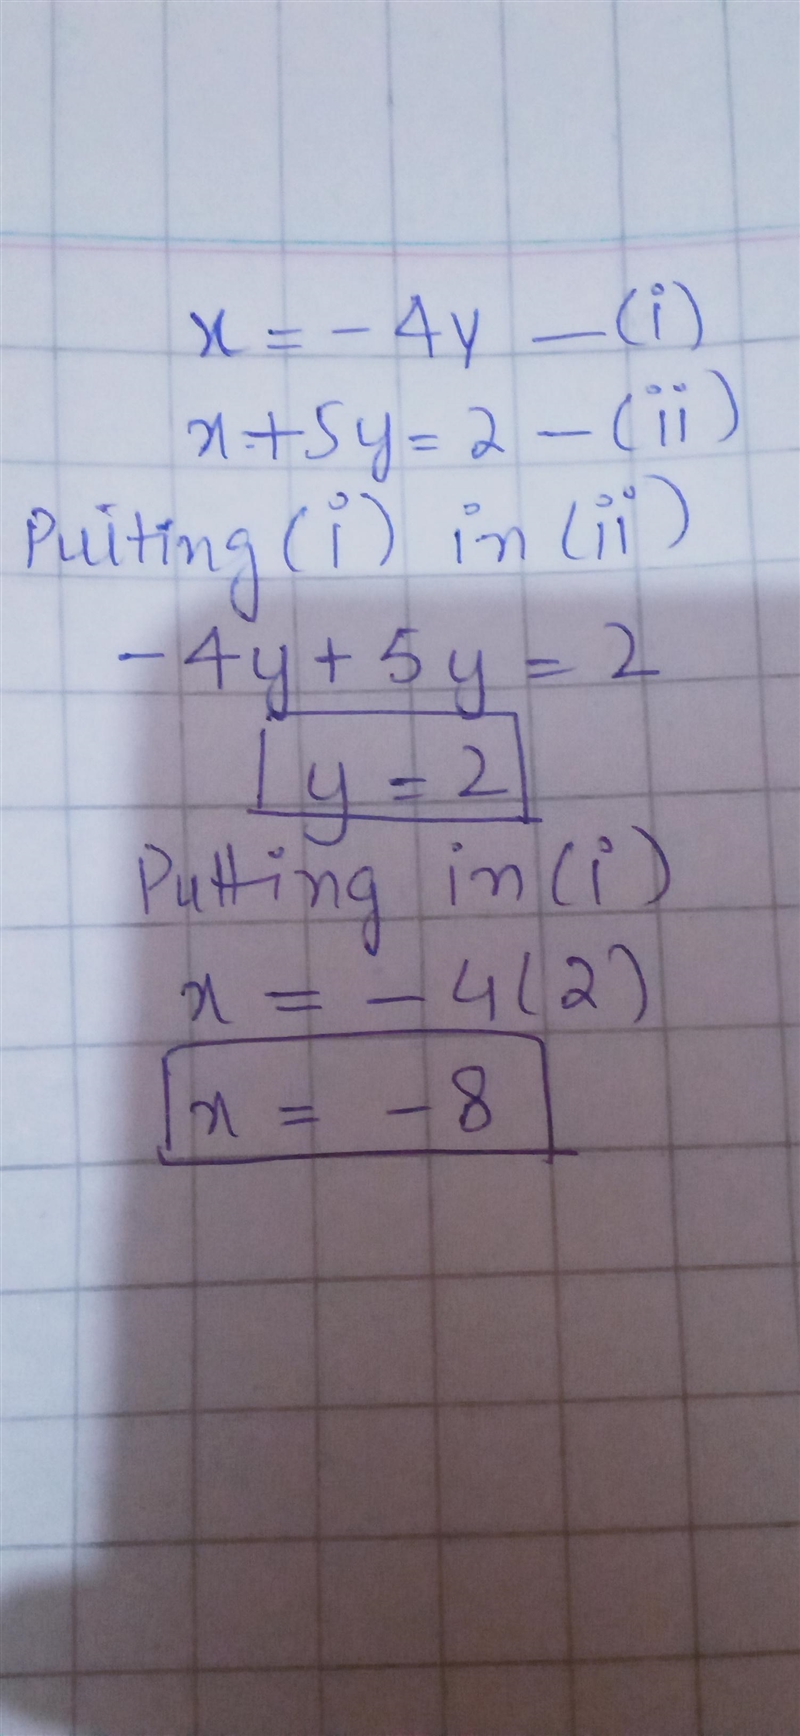 x = - 4y — (i)
x + 5y = 2 — (ii)
Putting (i) in (ii)
- 4y + 5y = 2
y = 2
Putting in (i)
x = - 4(2)
x = - 8